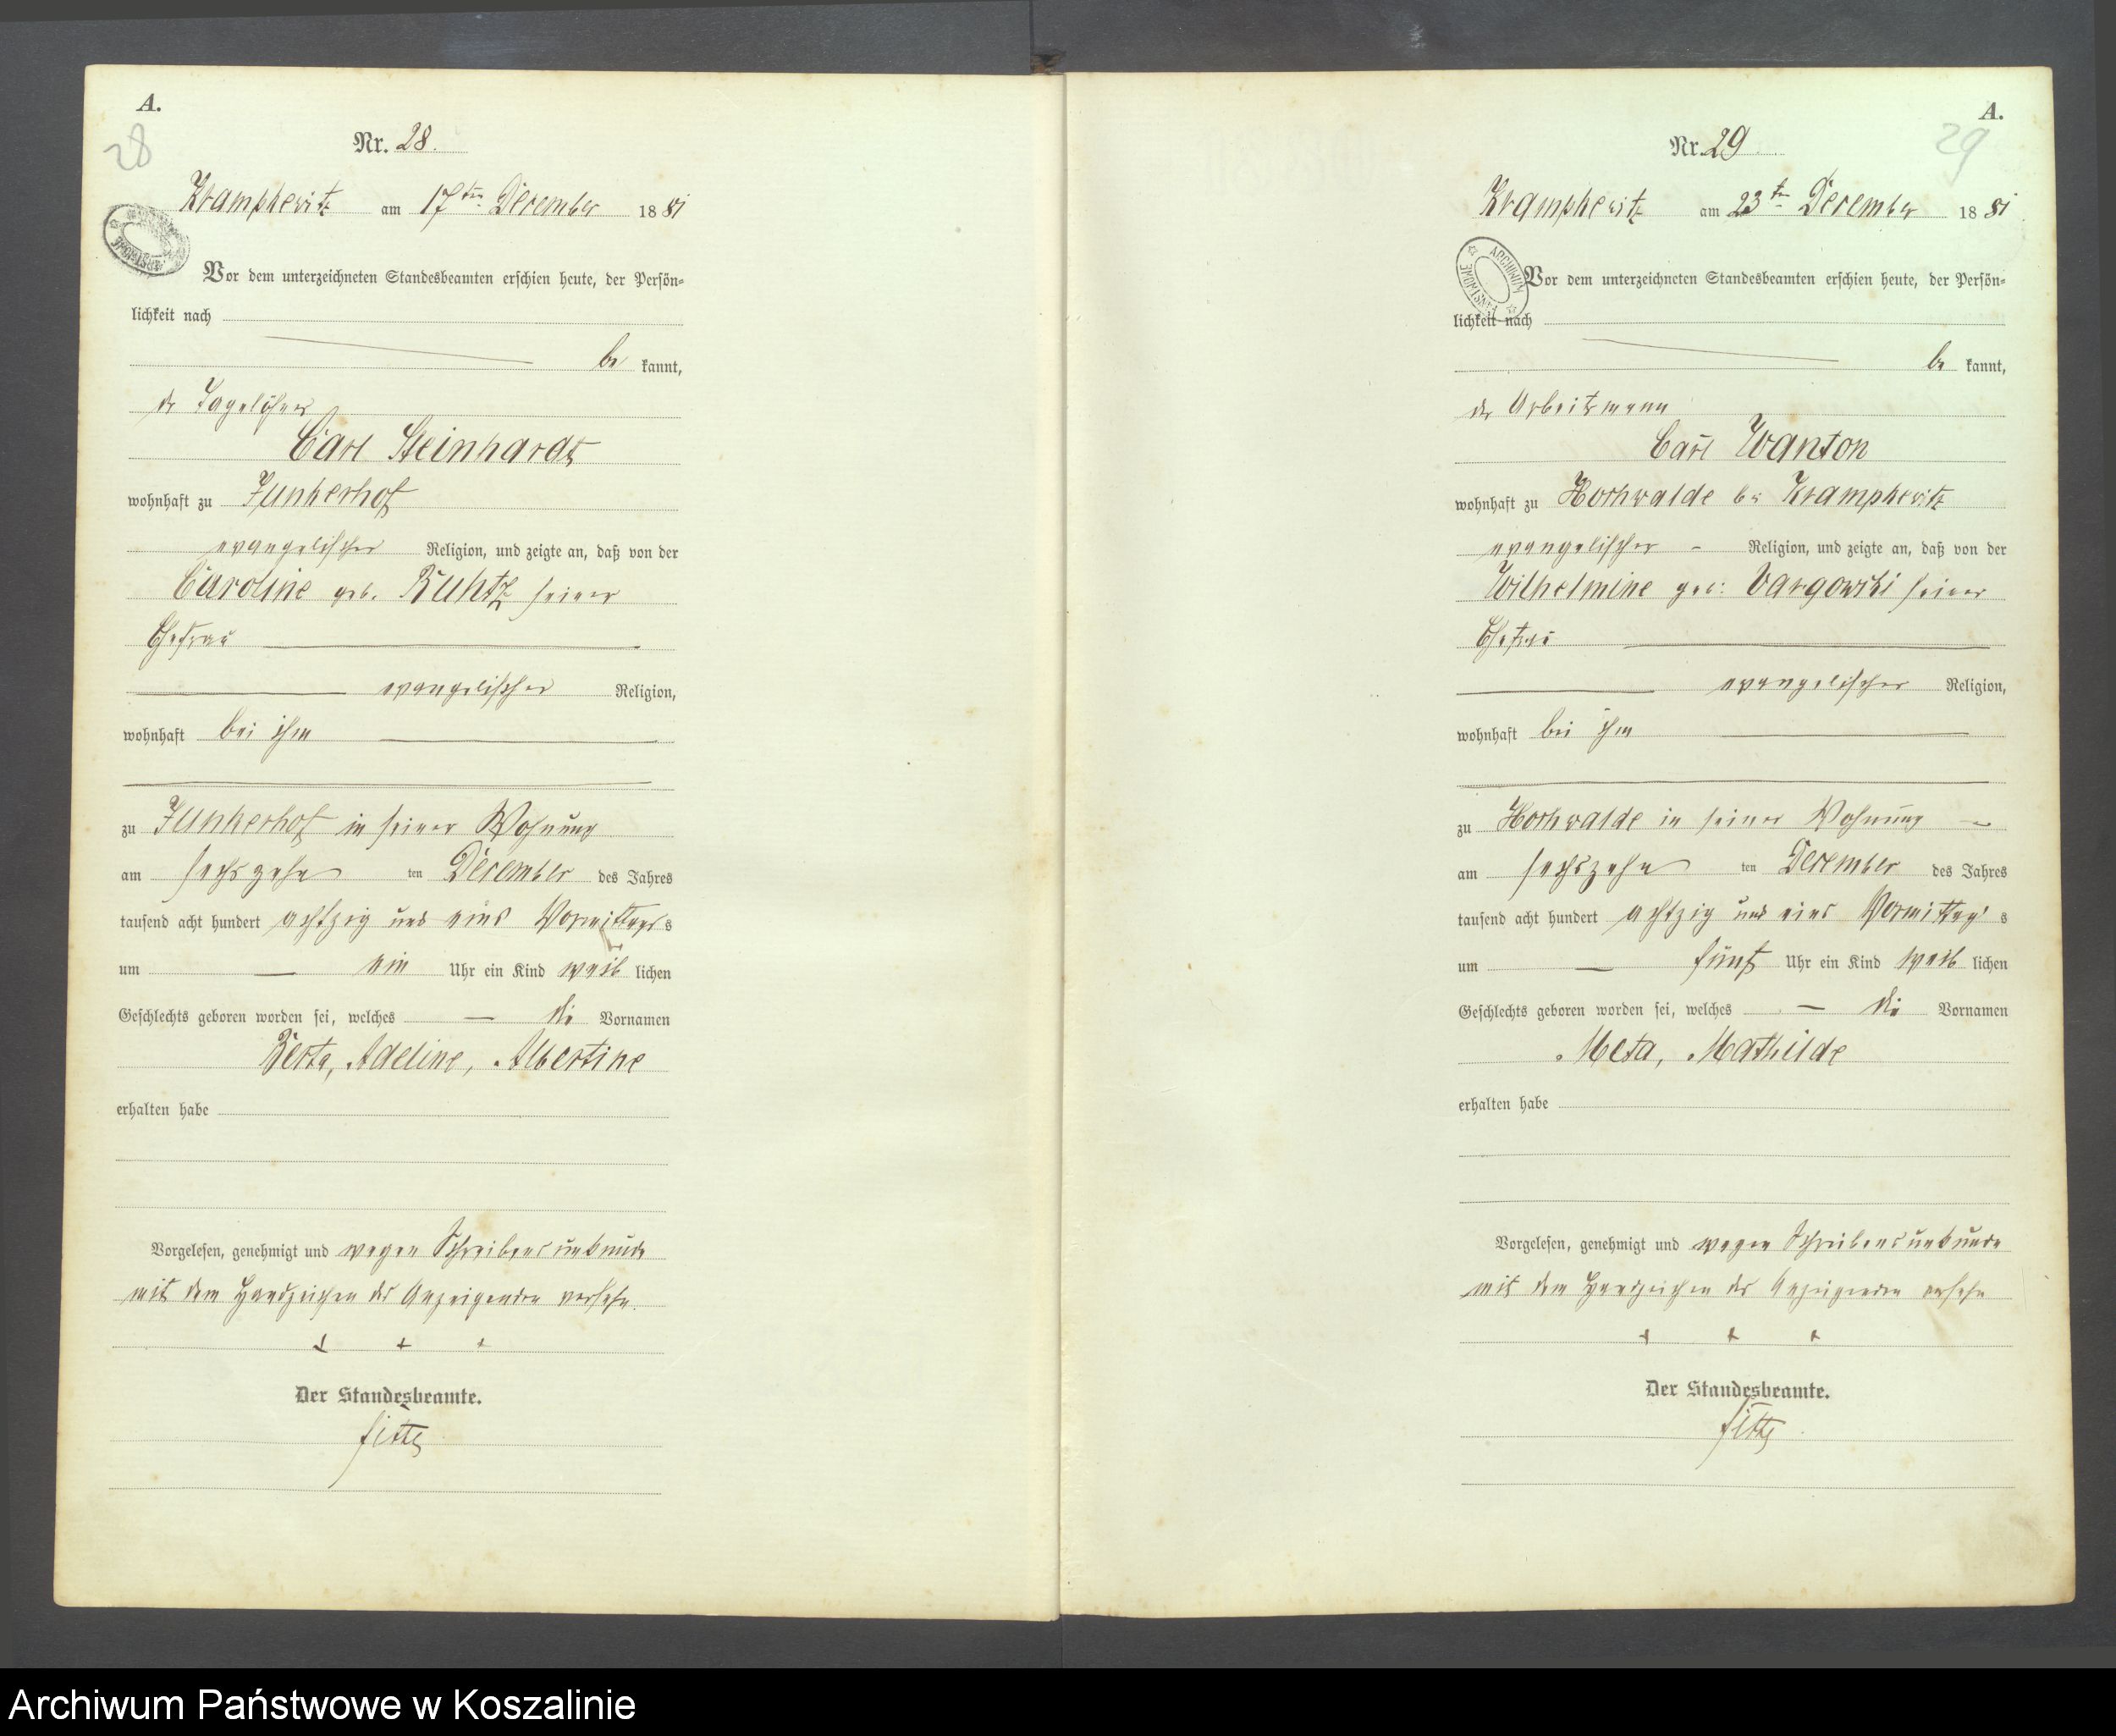 A.
28
Nr. 28.
Krampkewitz am 17ten December 1881
Vor dem unterzeichneten Standesbeamten erschien heute, der Persön-
lichkeit nach
be kannt,
der Tagelöhner
Carl Steinhardt
wohnhaft zu Junkerhof
evangelischer Religion, und zeigte an, daß von der
Caroline geb. Kuhtz seiner
Ehefrau
evangelischer Religion,
wohnhaft bei ihm
zu Junkerhof in seiner Wohnung
am sechszehn ten December des Jahres
tausend acht hundert achtzig und eins Vormittags s
um ein Uhr ein Kind weib lichen
Geschlechts geboren worden sei, welches die Vornamen
Berta, Adeline, Albertine
erhalten habe
Vorgelesen, genehmigt und wegen Schreibensunkunde
mit dem Handzeichen des Anzeigenden versehn.
+ + +
Der Standesbeamte.
A.
29
Nr. 29
Krampkewitz am 23ten December 1881
ARCHIWUM PAŃSTWOWE
Vor dem unterzeichneten Standesbeamten erschien heute, der Persön-
lichkeit nach
be kannt,
der Arbeitsmann
Carl Wanton
wohnhaft zu Hochwalde bei Krampkewitz
evangelischer - Religion, und zeigte an, daß von der
Wilhelmine geb: Vargowski seiner
Ehefrau
evangelischer Religion,
wohnhaft bei ihm
zu Hochwalde in seiner Wohnung
am sechszehn ten December des Jahres
tausend acht hundert achtzig und eins Vormittag s
um fünf Uhr ein Kind weib lichen
Geschlechts geboren worden sei, welches die Vornamen
Meta, Mathilde
erhalten habe
Vorgelesen, genehmigt und wegen Schreibensunkunde
mit dem Handzeichen des Anzeigenden versehn
+ + +
Der Standesbeamte.
Archiwum Państwowe w Koszalinie